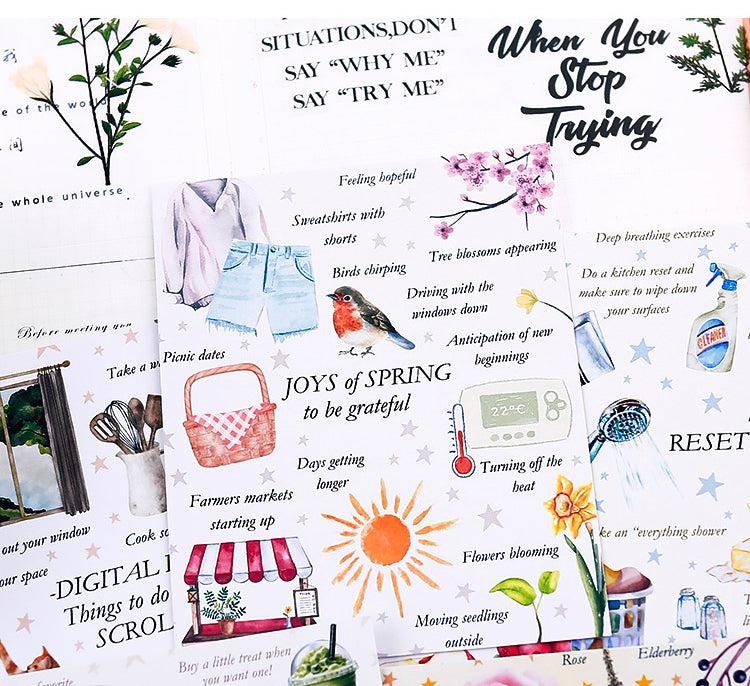 SITUATIONS,DON'T
SAY "WHY ME"
SAY "TRY ME"
When You
Stop
Trying
e of the world
间
e whole universe.
Feeling hopeful
Sweatshirts with
shorts
Tree blossoms appearing
Birds chirping
Driving with the
windows down
Anticipation of new
beginnings
Picnic dates
JOYS of SPRING
to be grateful
22°C
Days getting
longer
Turning off the
heat
Farmers markets
starting up
Flowers blooming
Moving seedlings
outside
Deep breathing exercises
Do a kitchen reset and
make sure to wipe down
your surfaces
CLEANER
RESET
ke an "everything shower
Before meeting you
Take a w
out your window
Cook so
our space
-DIGITAL
Things to do
SCROL
Buy a little treat when
you want one!
favorite
Rose
Elderberry